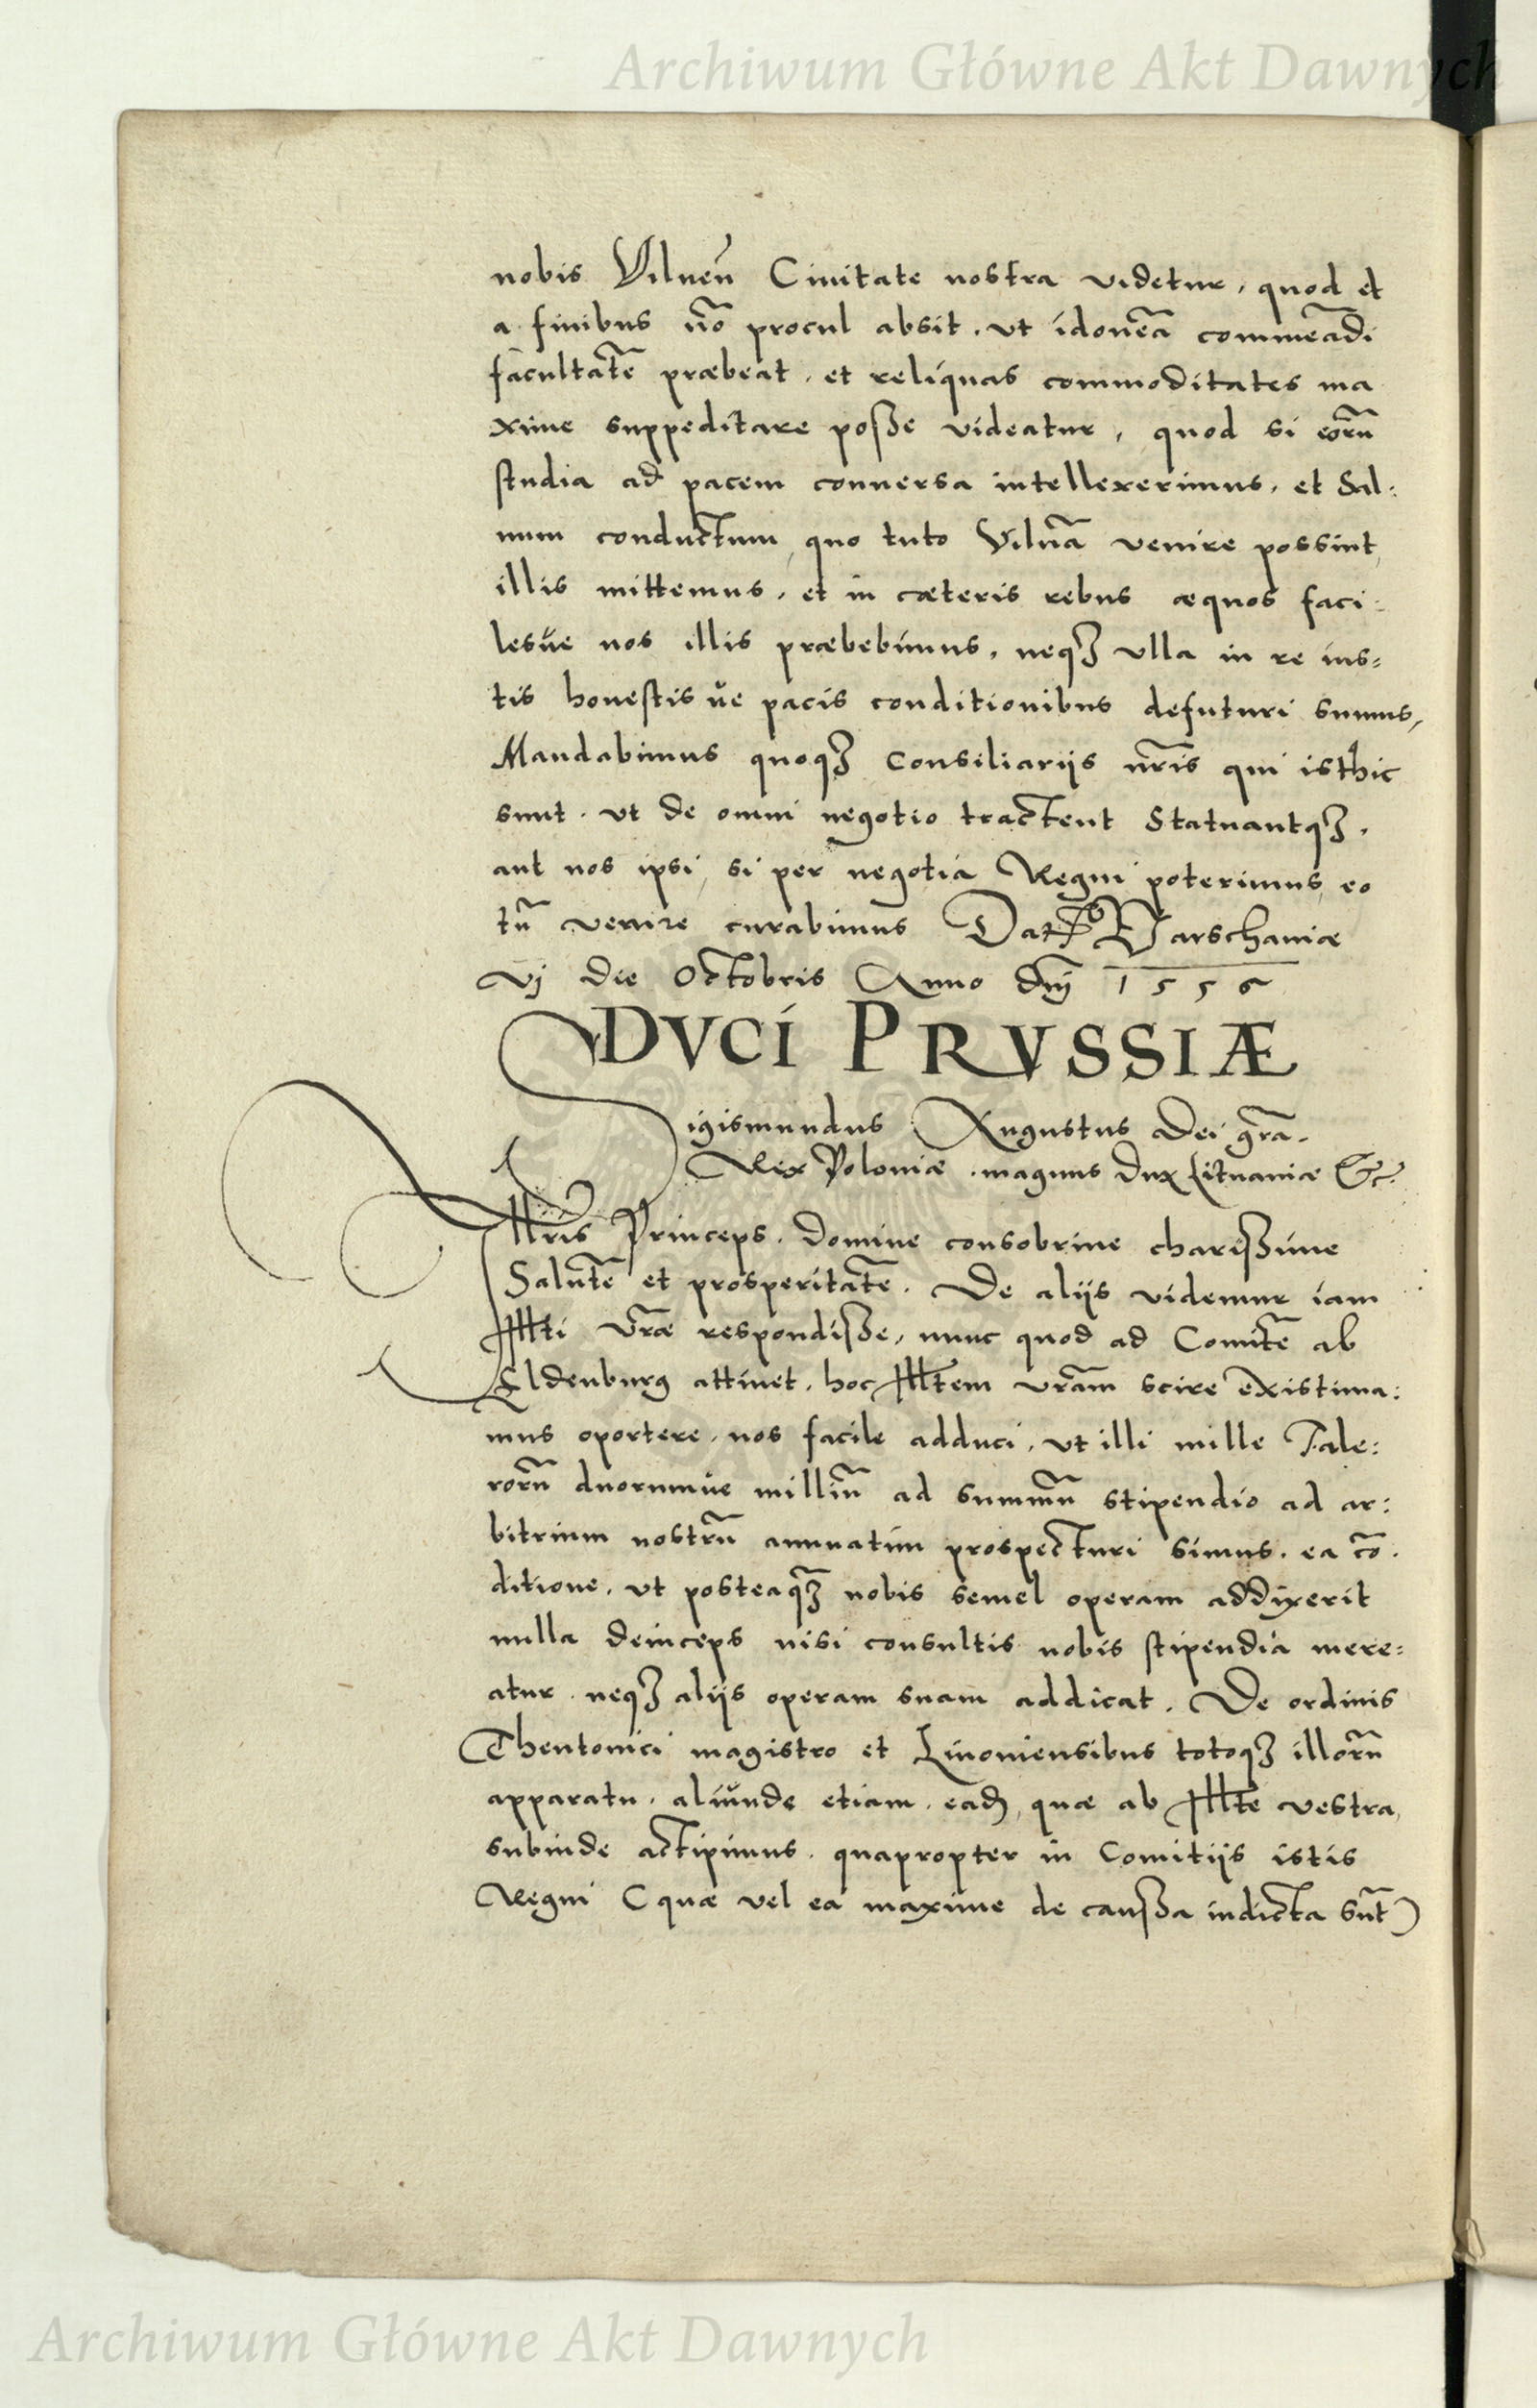 Archiwum Główne Akt Dawnych
nobis Vilneñ Ciuitate nostra videtur, quod et
a finibus nõ procul absit, ut idoneã commeãdi
facultatẽ præbeat, et reliquas commoditates ma
xime suppeditare posse videatur, quod si eorũ
studia ad pacem conuersa intellexerimus, et Sal:
uum conductum, quo tuto Vilnã venire possint,
illis mittemus, et in cæteris rebus æquos faci:
lesue nos illis præbebimus, neqȝ ulla in re ius:
tis honestisue pacis conditionibus defuturi sumus,
Mandabimus quoqȝ Consiliarijs nr̃is qui isthic
sunt, ut de omni negotio tractent Statuantqȝ,
aut nos ipsi, si per negotia Regni poterimus, eo
tũ venire curabimus Dat̃ Varschauiæ
vj die Octobris Anno dñj 1556
DVCI PRVSSIÆ
Sigismundus Augustus Dei gr̃a.
Rex Poloniæ, magnus Dux Lituaniæ &c.
Illris Princeps, Domine consobrine charissime
Salutẽ et prosperitatẽ. De alijs videmur iam
Illti Vr̃æ respondisse, nunc quod ad Comitẽ ab
Eldenburg attinet, hoc Illtem vr̃am scire existima:
mus oportere, nos facile adduci, ut illi mille Tale:
rorũ duorumue milliũ ad summũ stipendio ad ar:
bitrium nostrũ annuatim prospecturi simus, ea cõ
ditione, ut posteaqȝ nobis semel operam addixerit
nulla deinceps nisi consultis nobis stipendia mere:
atur, neqȝ alijs operam suam addicat. De ordinis
Theutonici magistro et Liuoniensibus totoqȝ illorũ
apparatu, aliunde etiam, eadẽ, quæ ab Illte vestra,
subinde actipimus, quapropter in Comitijs istis
Regni (quæ vel ea maxime de caussa indicta sũt)
Archiwum Główne Akt Dawnych